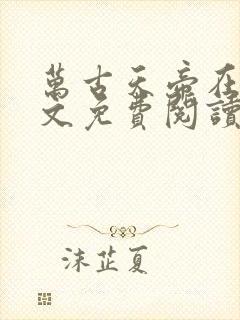 萬古天帝在
文免費閱讀
沫芷夏